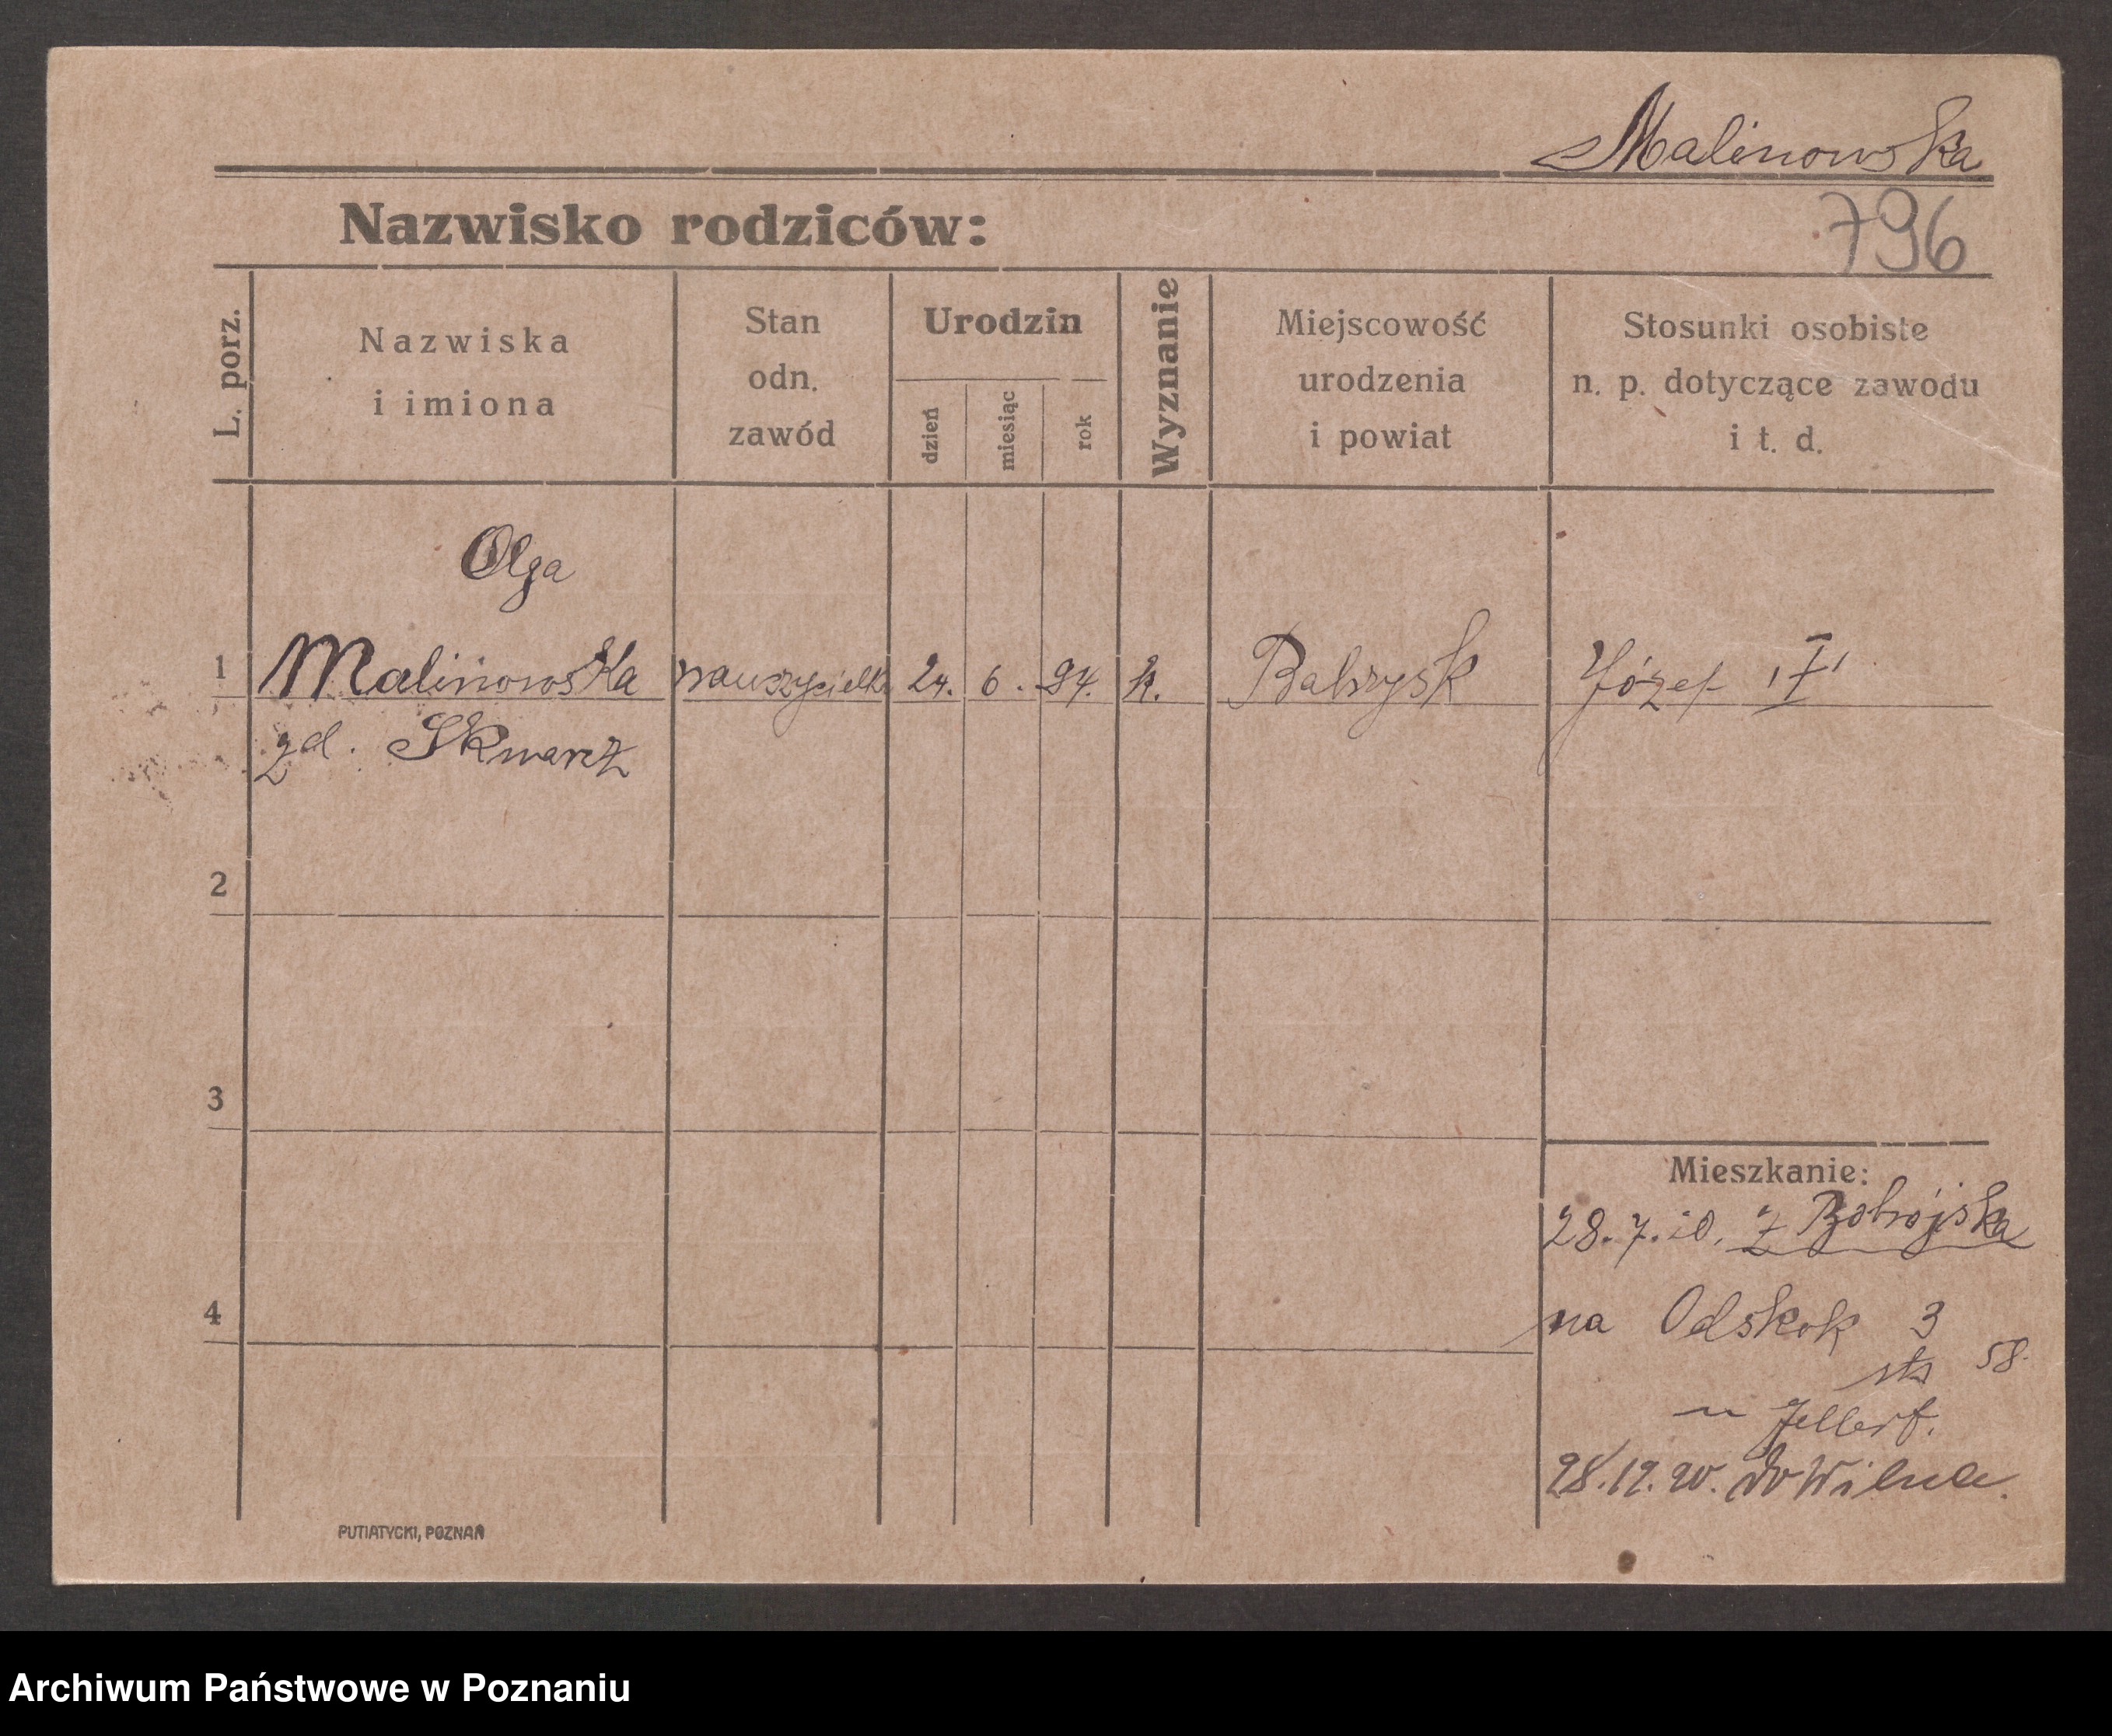 Malinowska
Nazwisko rodziców:
796
L. porz.
Nazwiska
i imiona
Stan
odn.
zawód
Urodzin
dzień
miesiąc
rok
Wyznanie
Miejscowość
urodzenia
i powiat
Stosunki osobiste
n. p. dotyczące zawodu
i t. d.
Olga
1 Malinowska nauczycielka 24. 6. 94. k. Józef
zd.
2
3
4
Mieszkanie:
28. 7. 20. z Bobrojska
na Odskok 3
58.
28.12.20. do Wilna.
PUTIATYCKI, POZNAŃ
Archiwum Państwowe w Poznaniu